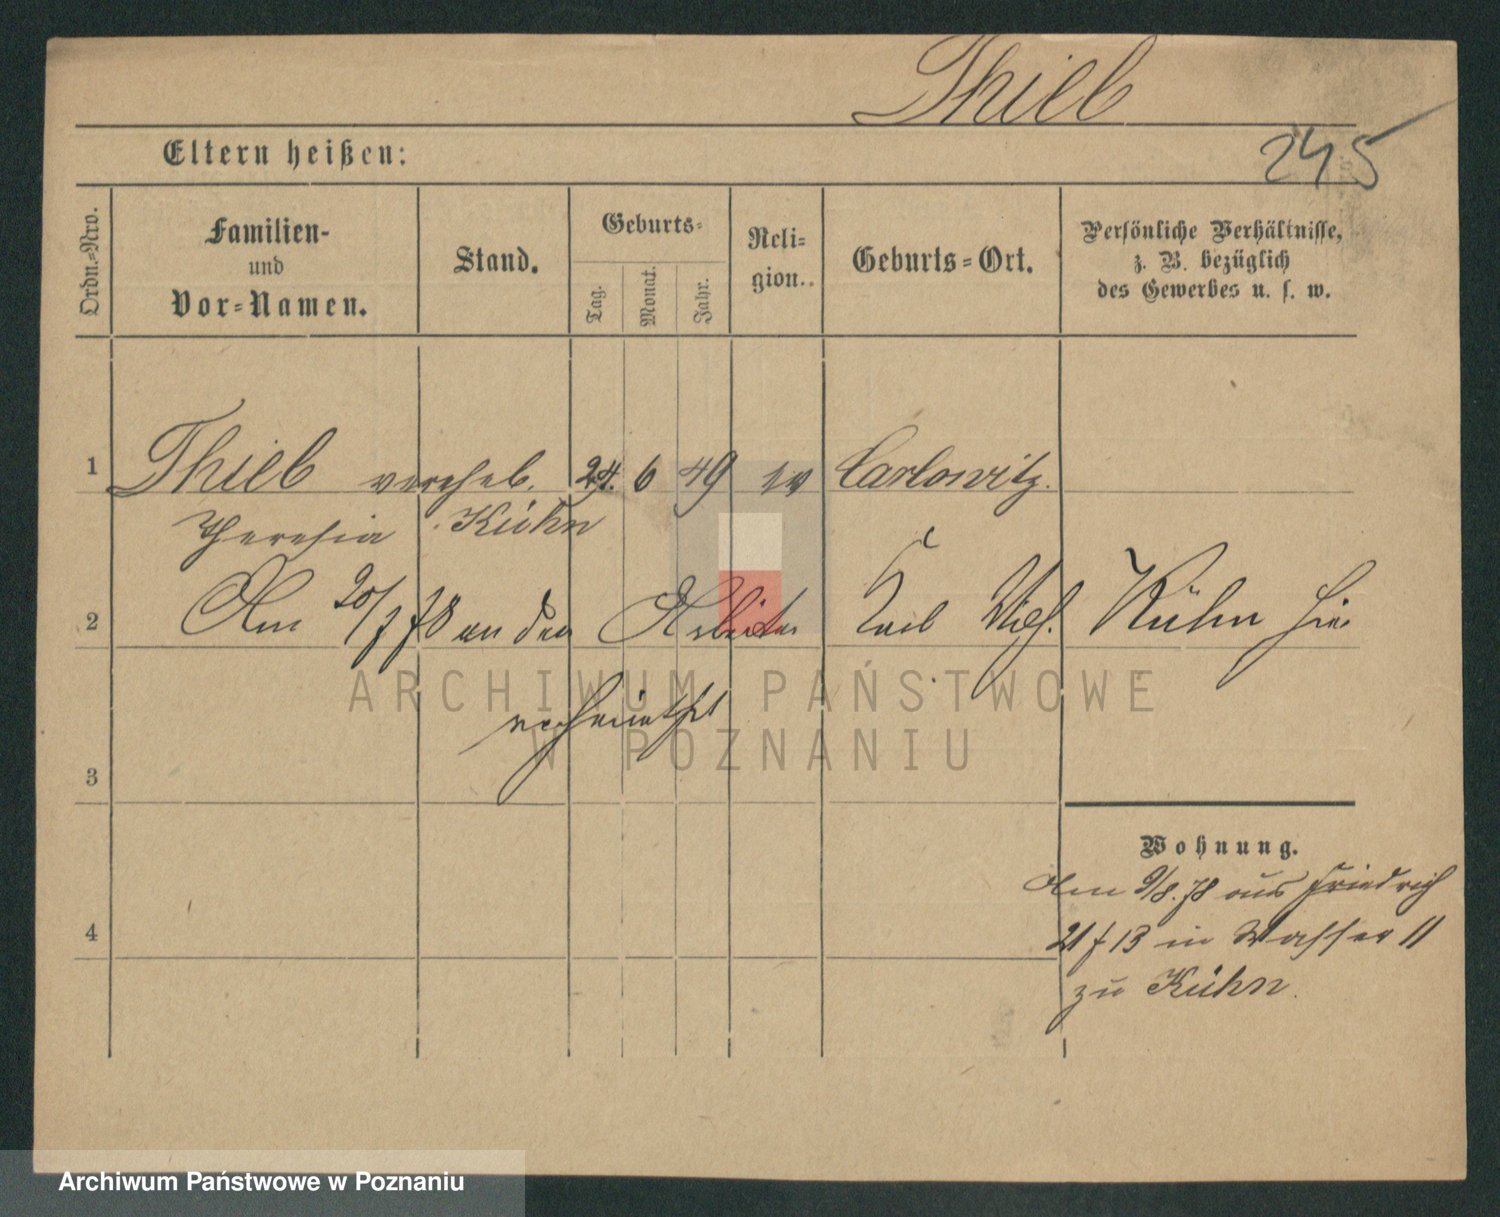 Thieb
Eltern heißen:
245
Ordn.-Nro.
Familien-
und
Vor-Namen.
Stand.
Geburts-
Tag.
Monat.
Jahr.
Reli-
gion..
Geburts-Ort.
Persönliche Verhältnisse,
z. B. bezüglich
des Gewerbes u. s. w.
1
Thieb vereheb. 24. 6 49 ev Carlowitz.
Theresia Kühn
2
Am 20/7 78 an den Arbeiter Karl Kühn hier
verheirathet
ARCHIWUM PAŃSTWOWE
W POZNANIU
3
Wohnung.
Am 9/8.78 aus Friedrich
21 f 13 in Wasser 11
zu Kühn.
4
Archiwum Państwowe w Poznaniu